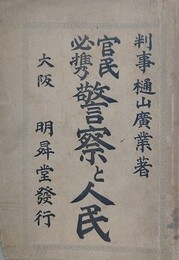 判事 樋山廣業著
官民必携 警察と人民
大阪 明昇堂發行